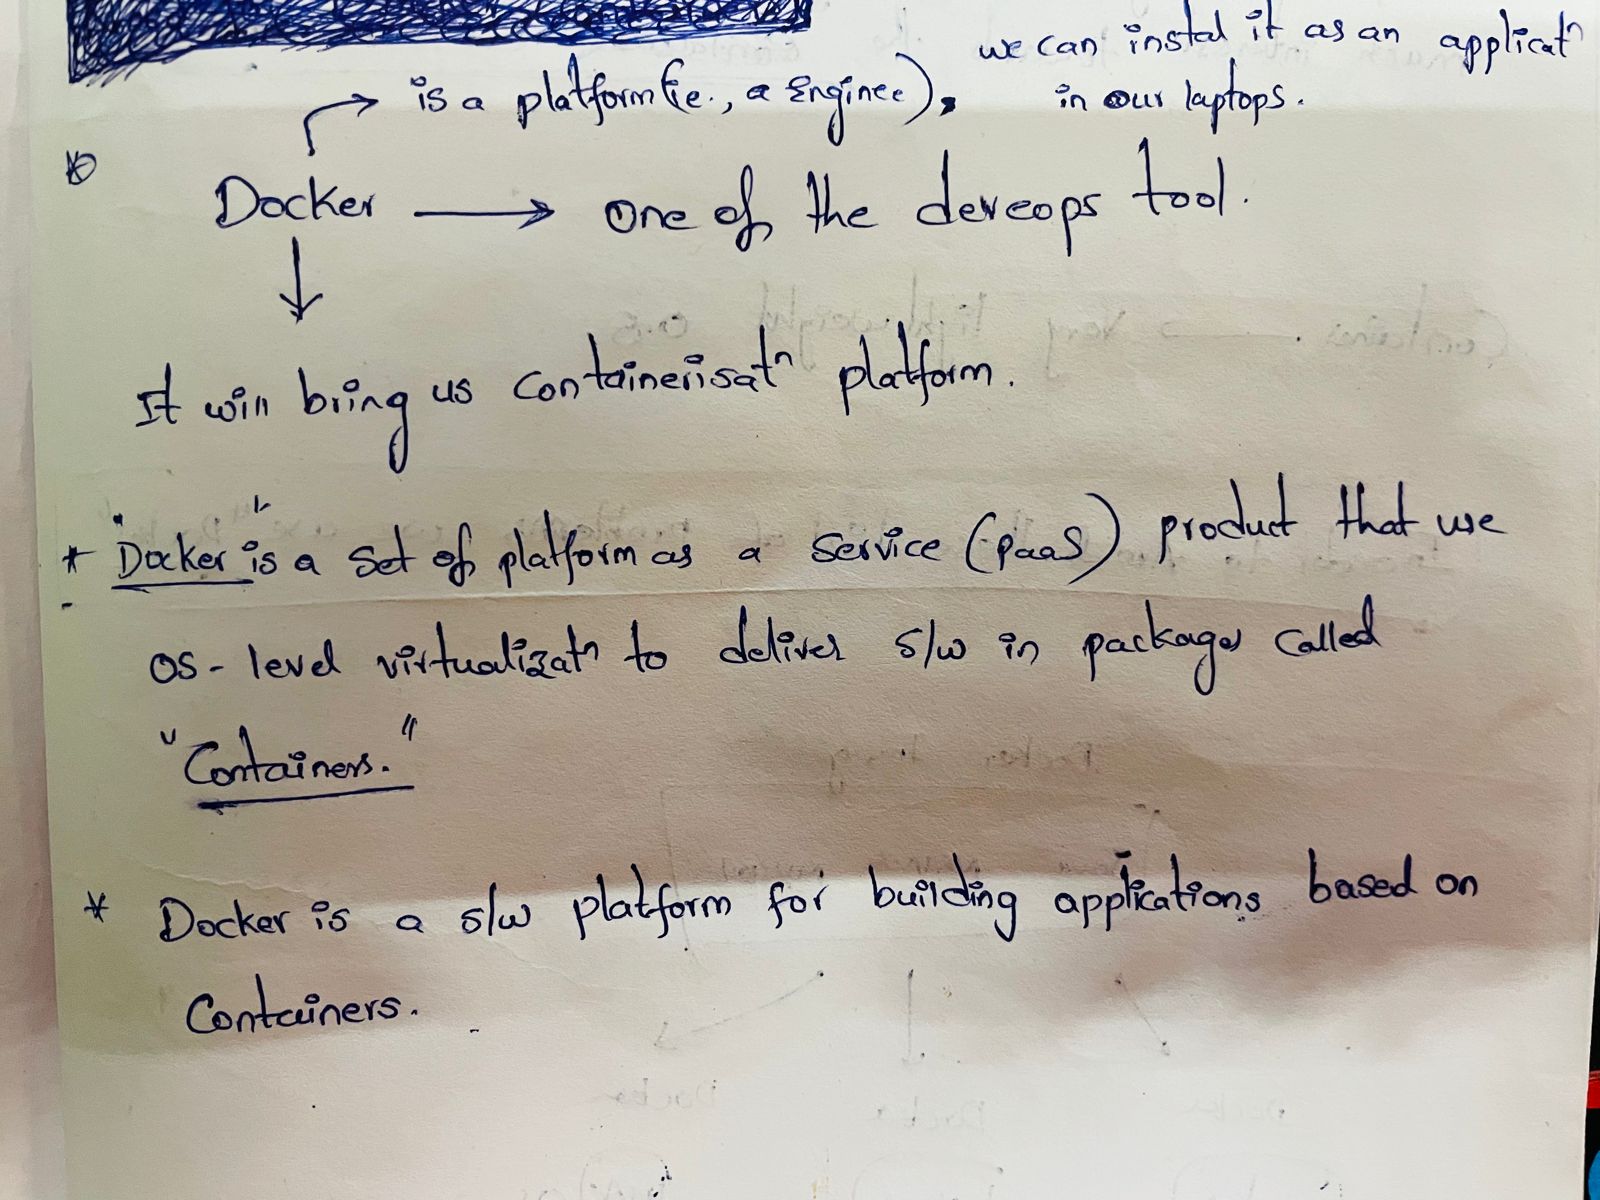 we can instal it as an applicatn
is a platform (ie., a Enginee), in our laptops.
Docker → one of the deveops tool.
It will bring us containerisatn platform.
* "Docker" is a set of platform as a service (PaaS) product that use
OS-level virtualizatn to deliver s/w in packages called
"Containers."
* Docker is a s/w platform for building applications based on
Containers.